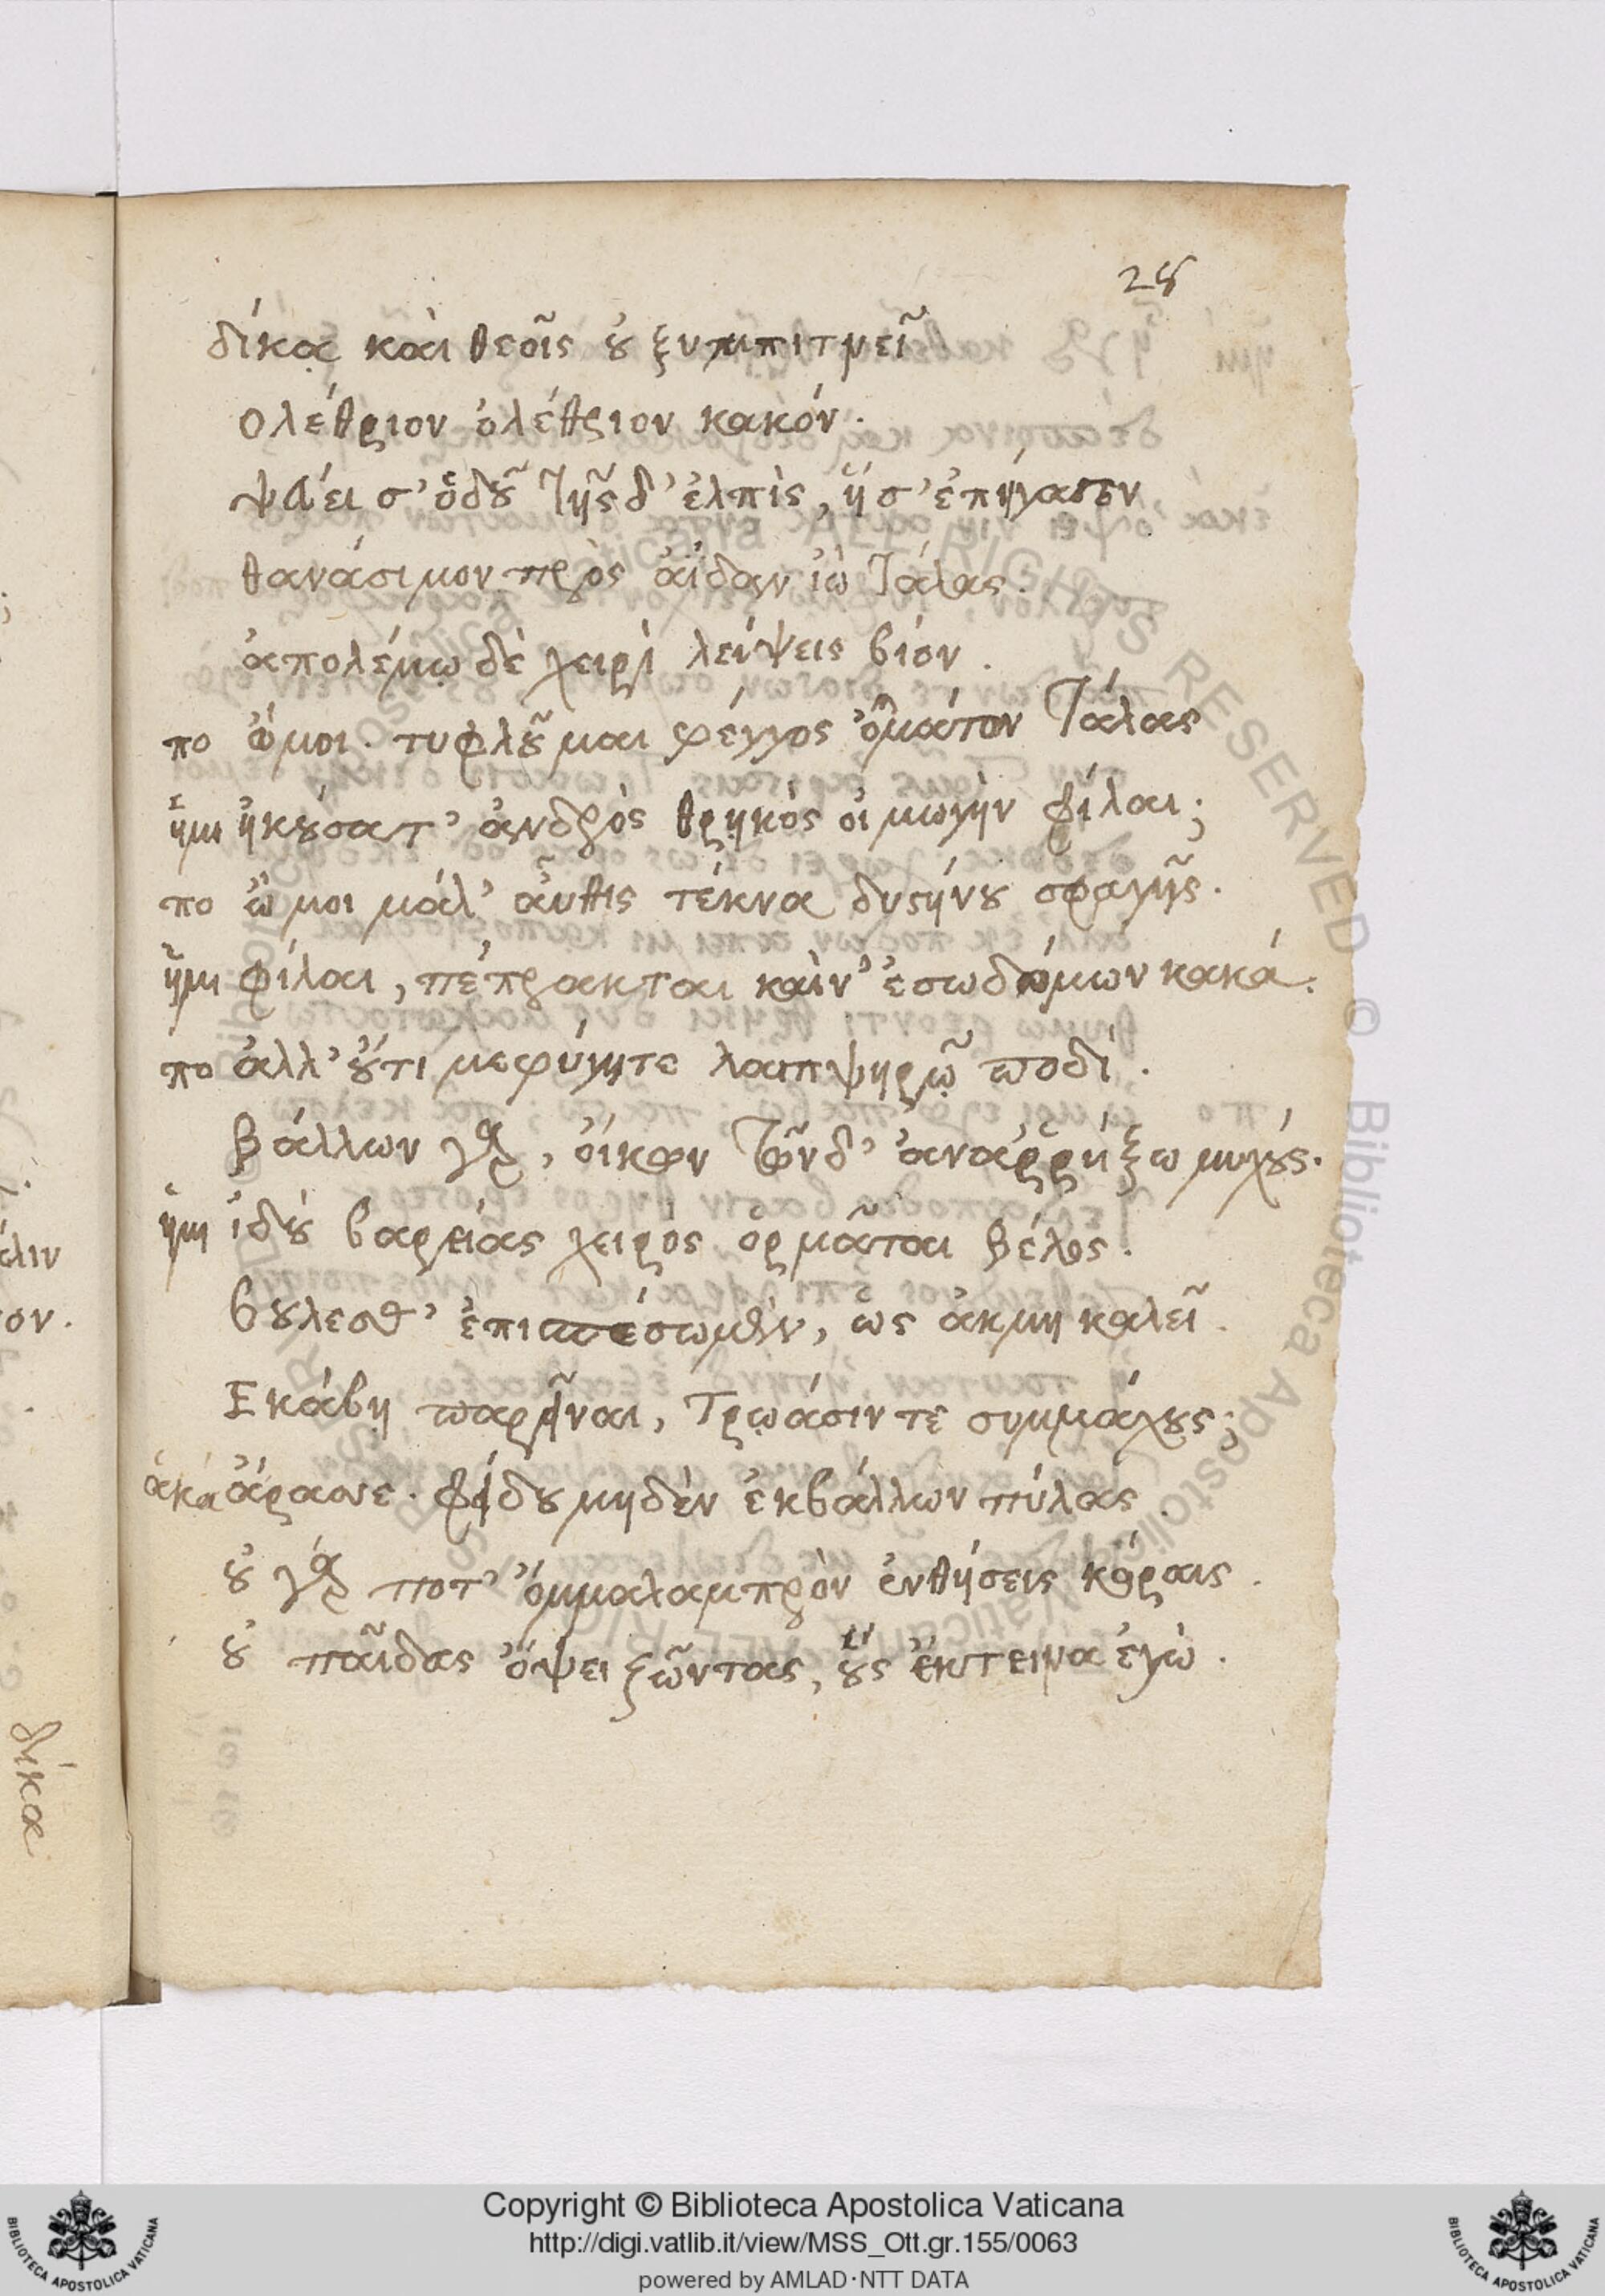 28
δίκᾳ καὶ θεοῖς ȣ ξυμπιτνεῖ
ολέθριον ὀλέθριον κακόν.
ψεύει σ' ὁδȣ͂ τῆςδ' ἐλπὶς, ἥ σ' ἐπήγασεν
θανάσιμον πρὸς ἀΐδαν ἰὼ τάλας.
ἀπολέμῳ δὲ χειρὶ λείψεις βίον.
πο ὤμοι. τυφλȣ͂μαι φέγγος ὀμάτον τάλας
ἡμι ἠκȣ́σατ' ἀνδρὸς θρῃκὸς οἰμωγὴν φίλαι;
πο ὤ μοι μάλ' αὖθις τέκνα δυςήνȣ σφαγῆς.
ἡμι φίλαι, πέπρακται καὶν' ἐσωδόμων κακά.
πο ἀλλ' ȣ́τι μεφύγητε λαιπψηρῷ ποδί.
Βάλλων γὰρ, οἴκων τῶνδ' ἀναῤῥήξω μυχȣ́ς.
ἡμι ἰδȣ́ βαρείας χειρὸς ὁρμᾶται βέλος.
βȣλεσθ' ἐπισπέσωμεν, ως ἀκμη καλεῖ.
Εκάβῃ παρῆναι, Τρῳάσιν τε συμμάχȣς;
ἑκά ἄρασσε. φείδȣ μηδὲν ἐκβάλλων πύλας.
ȣ γὰρ ποτ' ὄμμαλαμπρὸν ἐνθήσεις κόραις.
ȣ παῖδας ὄψει ζῶντας, ȣ̓́ς ἔκτεινα ἐγὼ.
άλιν
ον.
δίκα
Copyright © Biblioteca Apostolica Vaticana
http://digi.vatlib.it/view/MSS_Ott.gr.155/0063
powered by AMLAD·NTT DATA
BIBLIOTECA APOSTOLICA VATICANA
BIBLIOTECA APOSTOLICA VATICANA